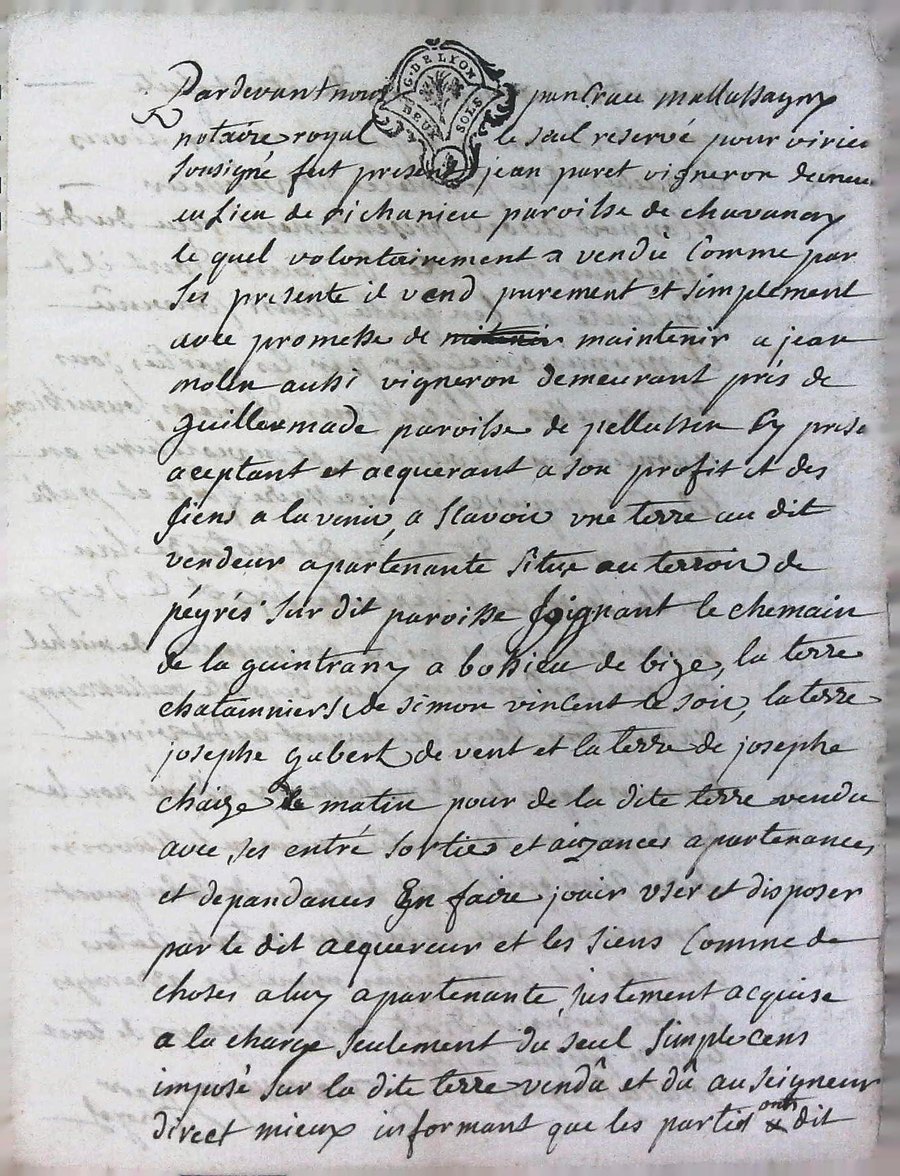 G. DE LYON
DEUX SOLS
Pardevant nous pancrace mallassagny
notaire royal le seul reservé pour virieu
sousigné fut present jean paret vigneron
au lieu de richanieu paroisse de chavanay
le quel volontairement a vendu comme par
ses presente il vend purement et simplement
avec promesse de maintenir a jean
molen aussi vigneron demeurant prés de
guillermade paroisse de pellussin
aceptant et acquerant a son profit et des
siens a lavenir, a scavoir une terre au dit
vendeur apartenante situe au terroir de
péyrés sur dit paroisse joignant le chemain
de la guintrany a bossieu de bize, la terre
de simon vincent le soir, la terre
josephe gabert de vent et la terre de josephe
chaize le matin pour de la dite terre vendu
avec ses entré sorties et aizances apartenances
et depandances En faire jouir user et disposer
par le dit acquereur et les siens comme de
choses a luy apartenante, justement acquise
a la charge seulement du seul simple cens
imposé sur la dite terre vendû et dû au seigneur
direct mieux informant que les parties ont dit